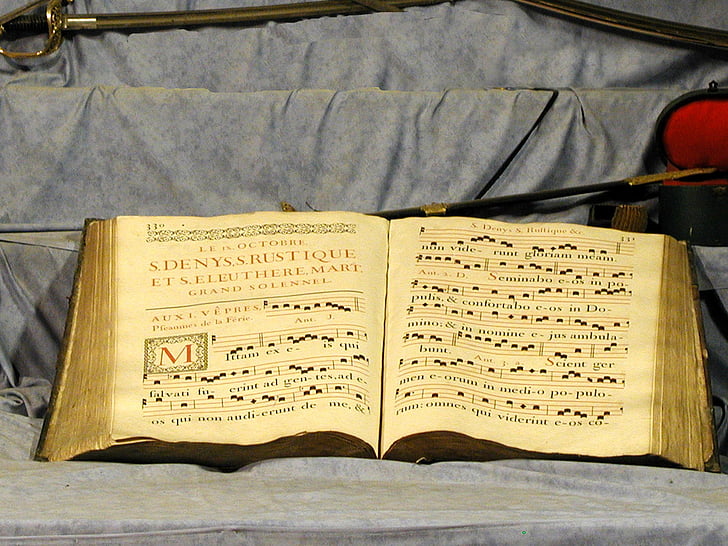 330
LE IX. OCTOBRE,
S. DENYS, S. RUSTIQUE
ET S. ELEUTHERE, MART,
GRAND SOLENNEL
AUX I. VÊPRES,
Pseaumes de la Férie. Ant. I.
MIttam ex e- is qui
salvati fu- erint ad gen-tes, ad e-
os qui non audi-erunt de me, &
S. Denys S. Rustique &c.
non vide- runt gloriam meam.
Ant. 2. D. Seminabo e-os in po-
pulis, & confortabo e-os in Do-
mino: & in nomine e- jus ambula-
bunt. Ant. 3. Scient ger
men e-orum in medi-o po-pulo-
rum: omnes qui viderint e-os co-